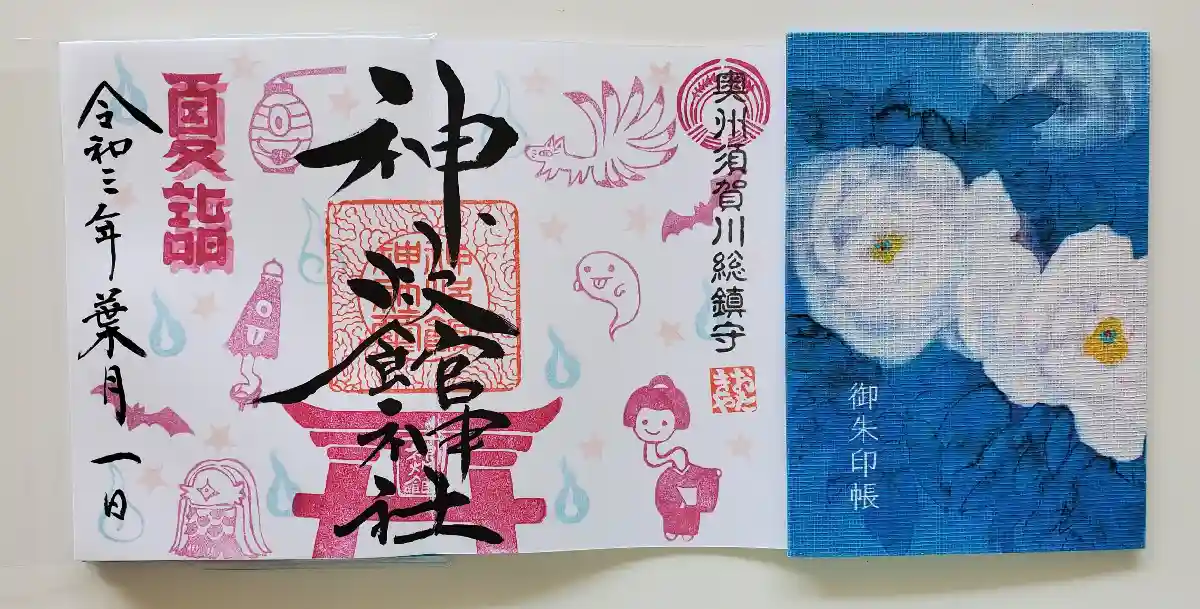 奥州須賀川総鎮守
おたきや
神炊館神社
夏詣
令和三年葉月一日
御朱印帳